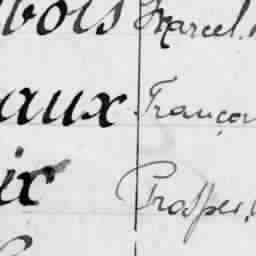 bois Marcel.
aux Françoi
ix Prosper,